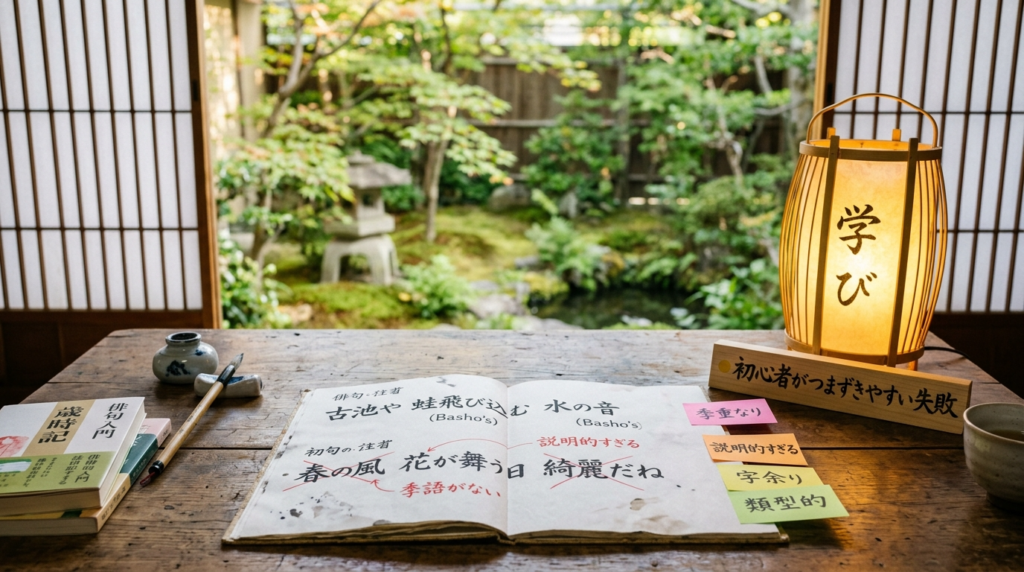 学び
初心者がつまずきやすい失敗
俳句・注省
古池や 蛙飛び込む 水の音
(Basho's) (Basho's)
初句の・注省
説明的すぎる
春の風 花が舞う日 綺麗だね
季語がない
季重なり
説明的すぎる
字余り
類型的
俳句入門
歳時記